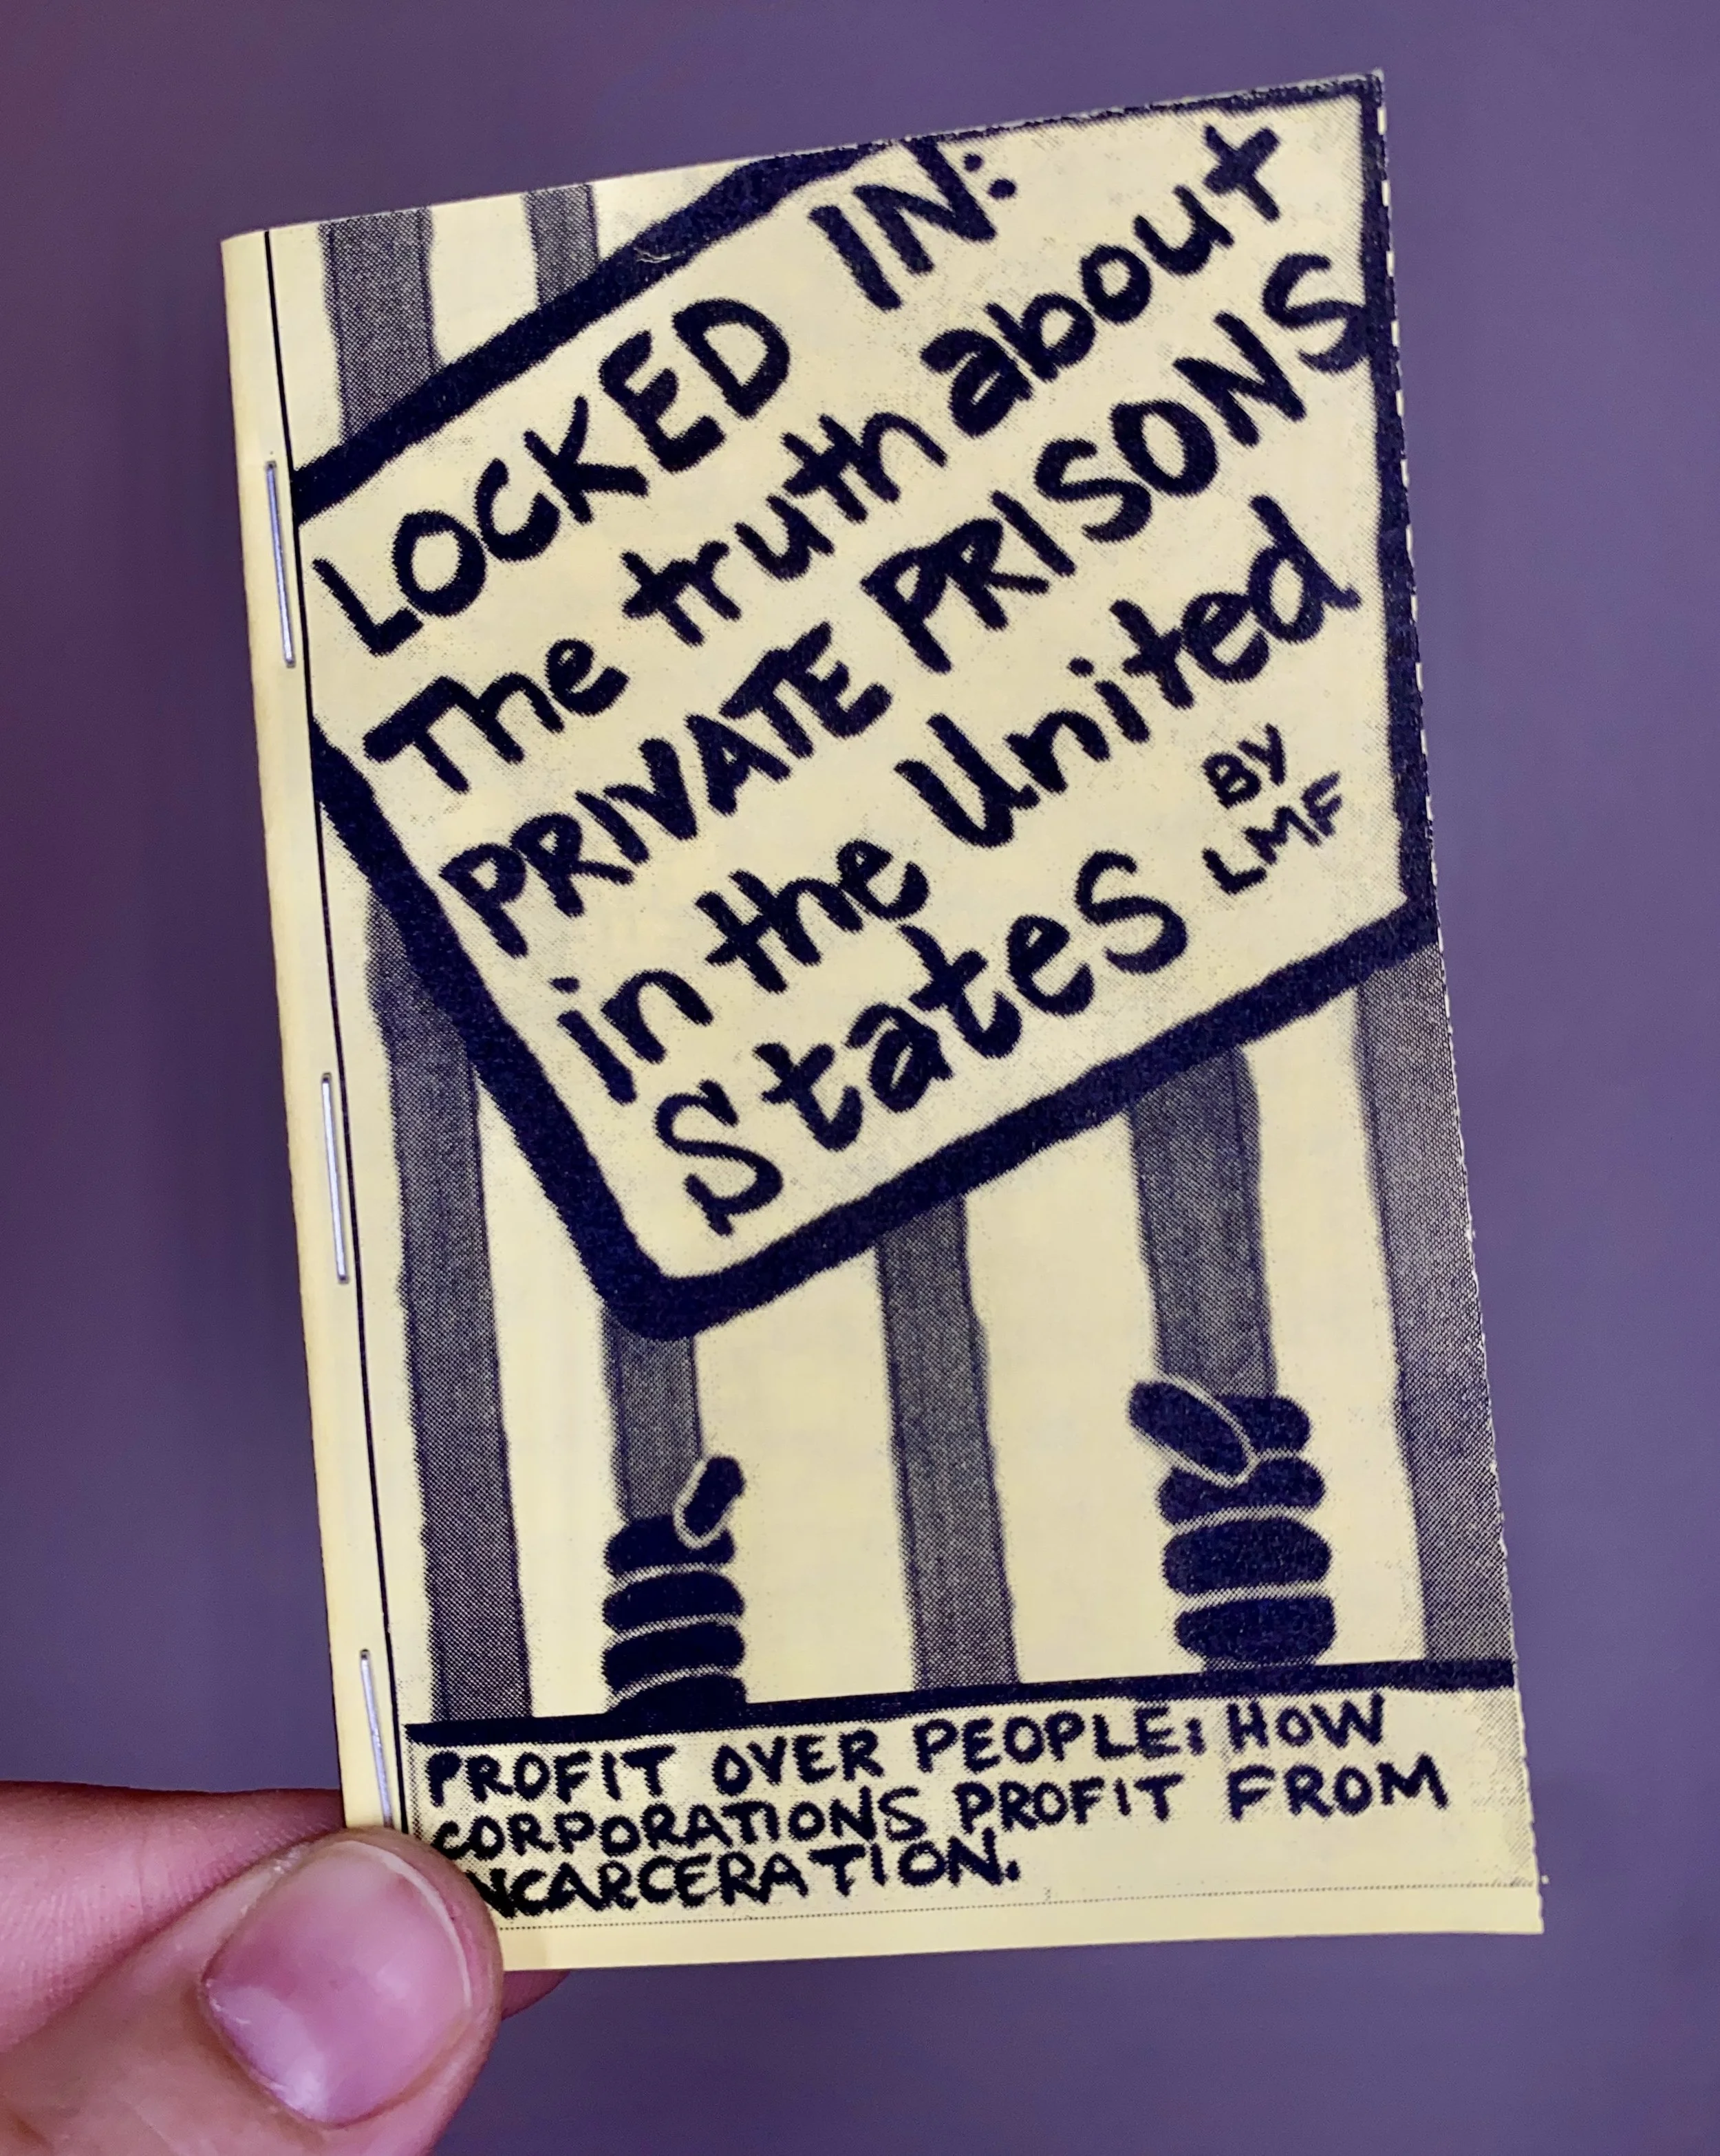 LOCKED IN:
The truth about
PRIVATE PRISONS
in the United
States
BY
LMF
PROFIT OVER PEOPLE: HOW
CORPORATIONS PROFIT FROM
INCARCERATION.